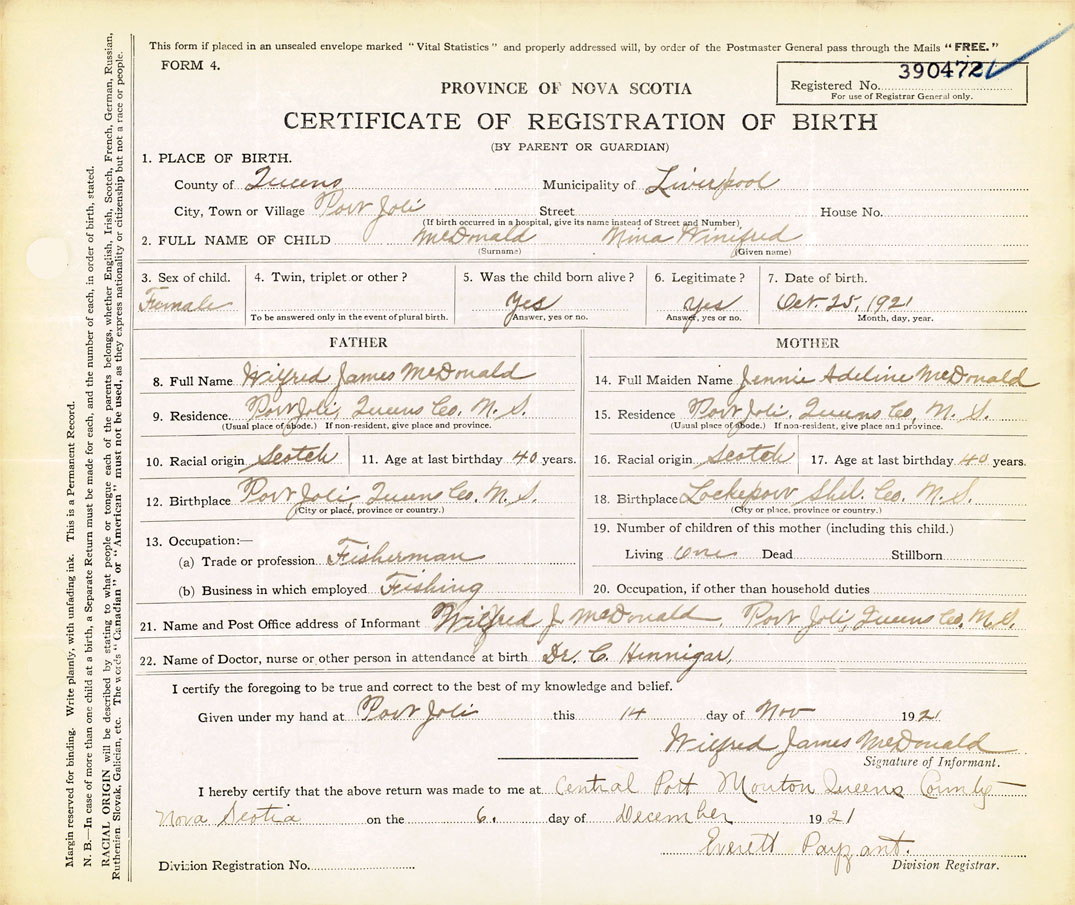 This form if placed in an unsealed envelope marked "Vital Statistics" and properly addressed will, by order of the Postmaster General pass through the Mails "FREE."
FORM 4.
390472
Registered No.
For use of Registrar General only.
PROVINCE OF NOVA SCOTIA
CERTIFICATE OF REGISTRATION OF BIRTH
(BY PARENT OR GUARDIAN)
1. PLACE OF BIRTH.
County of Queens Municipality of Liverpool
City, Town or Village Port Joli Street House No.
(If birth occurred in a hospital, give its name instead of Street and Number)
2. FULL NAME OF CHILD McDonald Nina Winifred
(Surname) (Given name)
3. Sex of child. 4. Twin, triplet or other? 5. Was the child born alive? 6. Legitimate? 7. Date of birth.
Female Yes Yes Oct. 25, 1921
To be answered only in the event of plural birth. Answer, yes or no. Answer, yes or no. Month, day, year.
FATHER
8. Full Name Wilfred James McDonald
9. Residence Port Joli, Queens Co. N. S.
(Usual place of abode.) If non-resident, give place and province.
10. Racial origin Scotch 11. Age at last birthday 40 years.
12. Birthplace Port Joli Queens Co. N. S.
(City or place, province or country.)
13. Occupation:—
(a) Trade or profession Fisherman
(b) Business in which employed Fishing
MOTHER
14. Full Maiden Name Jennie Adeline McDonald
15. Residence Port Joli, Queens Co, N. S.
(Usual place of abode.) If non-resident, give place and province.
16. Racial origin Scotch 17. Age at last birthday 40 years.
18. Birthplace Lockeport Shel. Co. N. S.
(City or place, province or country.)
19. Number of children of this mother (including this child.)
Living One Dead Stillborn
20. Occupation, if other than household duties
21. Name and Post Office address of Informant Wilfred J. McDonald, Port Joli, Queens Co. N.S.
22. Name of Doctor, nurse or other person in attendance at birth Dr. C. Hennigar,
I certify the foregoing to be true and correct to the best of my knowledge and belief.
Given under my hand at Port Joli this 14 day of Nov 1921
Wilfred James McDonald
Signature of Informant.
I hereby certify that the above return was made to me at Central Port Mouton Queens County
Nova Scotia on the 6. day of December 1921
Everett Payzant.
Division Registration No. Division Registrar.
Margin reserved for binding. Write plainly, with unfading ink. This is a Permanent Record.
N. B.—In case of more than one child at a birth, a Separate Return must be made for each, and the number of each, in order of birth, stated.
RACIAL ORIGIN will be described by stating to what people or tongue each of the parents belongs, whether English, Irish, Scotch, French, German, Russian,
Ruthenian, Slovak, Galician, etc. The words "Canadian" or "American" must not be used, as they express nationality or citizenship but not a race or people.